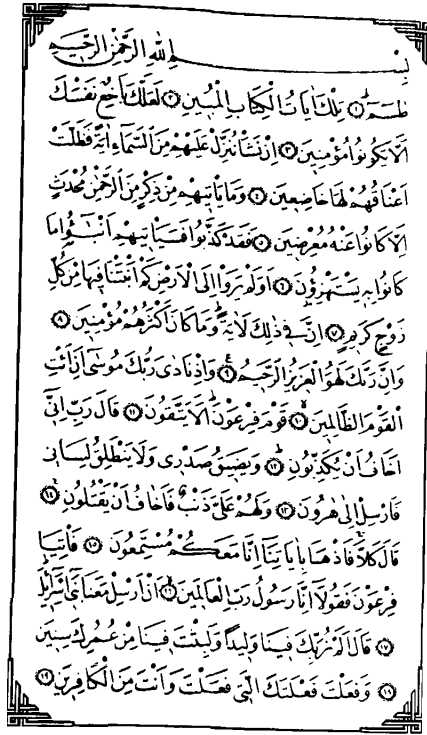 بِسْمِ اللّٰهِ الرَّحْمٰنِ الرَّحِيمِ
طٰسٓمٓ ﴿١﴾ تِلْكَ اٰيَاتُ الْكِتَابِ الْمُبِينِ ﴿٢﴾ لَعَلَّكَ بَاخِعٌ نَفْسَكَ
اَلَّا يَكُونُوا مُؤْمِنِينَ ﴿٣﴾ اِنْ نَشَأْ نُنَزِّلْ عَلَيْهِمْ مِنَ السَّمَآءِ اٰيَةً فَظَلَّتْ
اَعْنَاقُهُمْ لَهَا خَاضِعِينَ ﴿٤﴾ وَمَا يَأْتِيهِمْ مِنْ ذِكْرٍ مِنَ الرَّحْمٰنِ مُحْدَثٍ
اِلَّا كَانُوا عَنْهُ مُعْرِضِينَ ﴿٥﴾ فَقَدْ كَذَّبُوا فَسَيَأْتِيهِمْ اَنْبٰٓؤُا مَا
كَانُوا بِهِ يَسْتَهْزِؤُنَ ﴿٦﴾ اَوَلَمْ يَرَوْا اِلَى الْاَرْضِ كَمْ اَنْبَتْنَا فِيهَا مِنْ كُلِّ
زَوْجٍ كَرِيمٍ ﴿٧﴾ اِنَّ فِى ذٰلِكَ لَاٰيَةً وَمَا كَانَ اَكْثَرُهُمْ مُؤْمِنِينَ ﴿٨﴾
وَاِنَّ رَبَّكَ لَهُوَ الْعَزِيزُ الرَّحِيمُ ﴿٩﴾ وَاِذْ نَادٰى رَبُّكَ مُوسٰٓى اَنِ ائْتِ
الْقَوْمَ الظَّالِمِينَ ﴿١٠﴾ قَوْمَ فِرْعَوْنَ اَلَا يَتَّقُونَ ﴿١١﴾ قَالَ رَبِّ اِنِّٓى
اَخَافُ اَنْ يُكَذِّبُونِ ﴿١٢﴾ وَيَضِيقُ صَدْرِى وَلَا يَنْطَلِقُ لِسَانِى
فَاَرْسِلْ اِلٰى هٰرُونَ ﴿١٣﴾ وَلَهُمْ عَلَىَّ ذَنْبٌ فَاَخَافُ اَنْ يَقْتُلُونِ ﴿١٤﴾
قَالَ كَلَّا فَاذْهَبَا بِاٰيَاتِنَٓا اِنَّا مَعَكُمْ مُسْتَمِعُونَ ﴿١٥﴾ فَأْتِيَا
فِرْعَوْنَ فَقُولَٓا اِنَّا رَسُولُ رَبِّ الْعَالَمِينَ ﴿١٦﴾ اَنْ اَرْسِلْ مَعَنَا بَنِٓى اِسْرَٓائِلَ
﴿١٧﴾ قَالَ اَلَمْ نُرَبِّكَ فِينَا وَلِيدًا وَلَبِثْتَ فِينَا مِنْ عُمُرِكَ سِنِينَ
﴿١٨﴾ وَفَعَلْتَ فَعْلَتَكَ الَّتِى فَعَلْتَ وَاَنْتَ مِنَ الْكَافِرِينَ ﴿١٩﴾